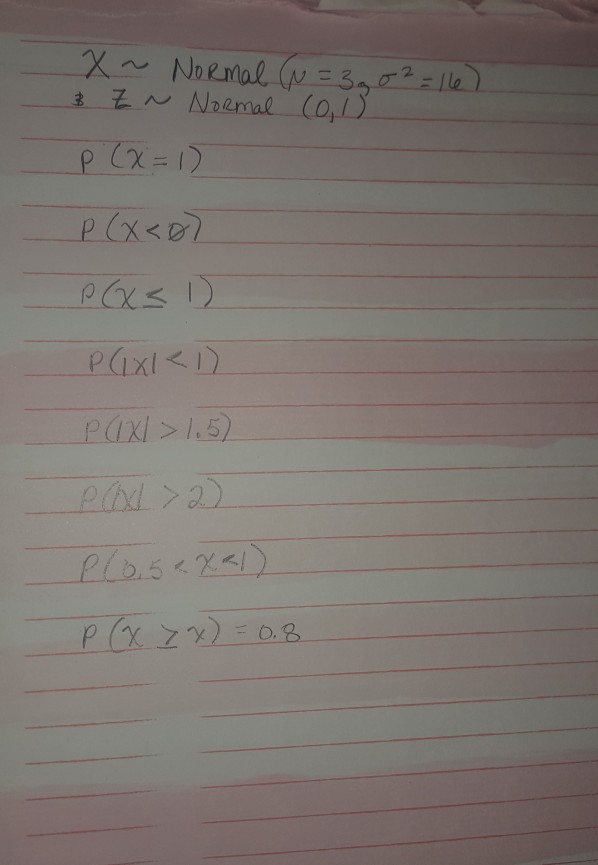 X ~ Normal (μ = 3, σ² = 16)
& Z ~ Normal (0,1)
P (X = 1)
P (X < 0)
P (X ≤ 1)
P(|X| < 1)
P(|X| > 1.5)
P(|X| > 2)
P(0.5 < X < 1)
P (X ≥ x) = 0.8